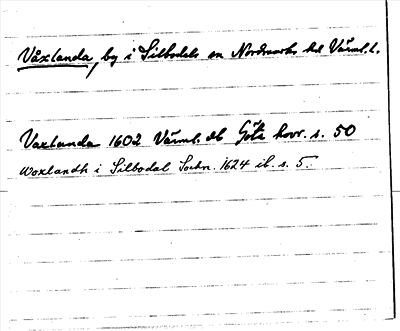 Våxlanda, by i Silbodals sn Nordmarks hd Värml. l.
Vaxlanda 1602 Värml. db Göta hovr. s. 50
Woxlandh i Silbodal Sockn. 1624 ib. s. 5.